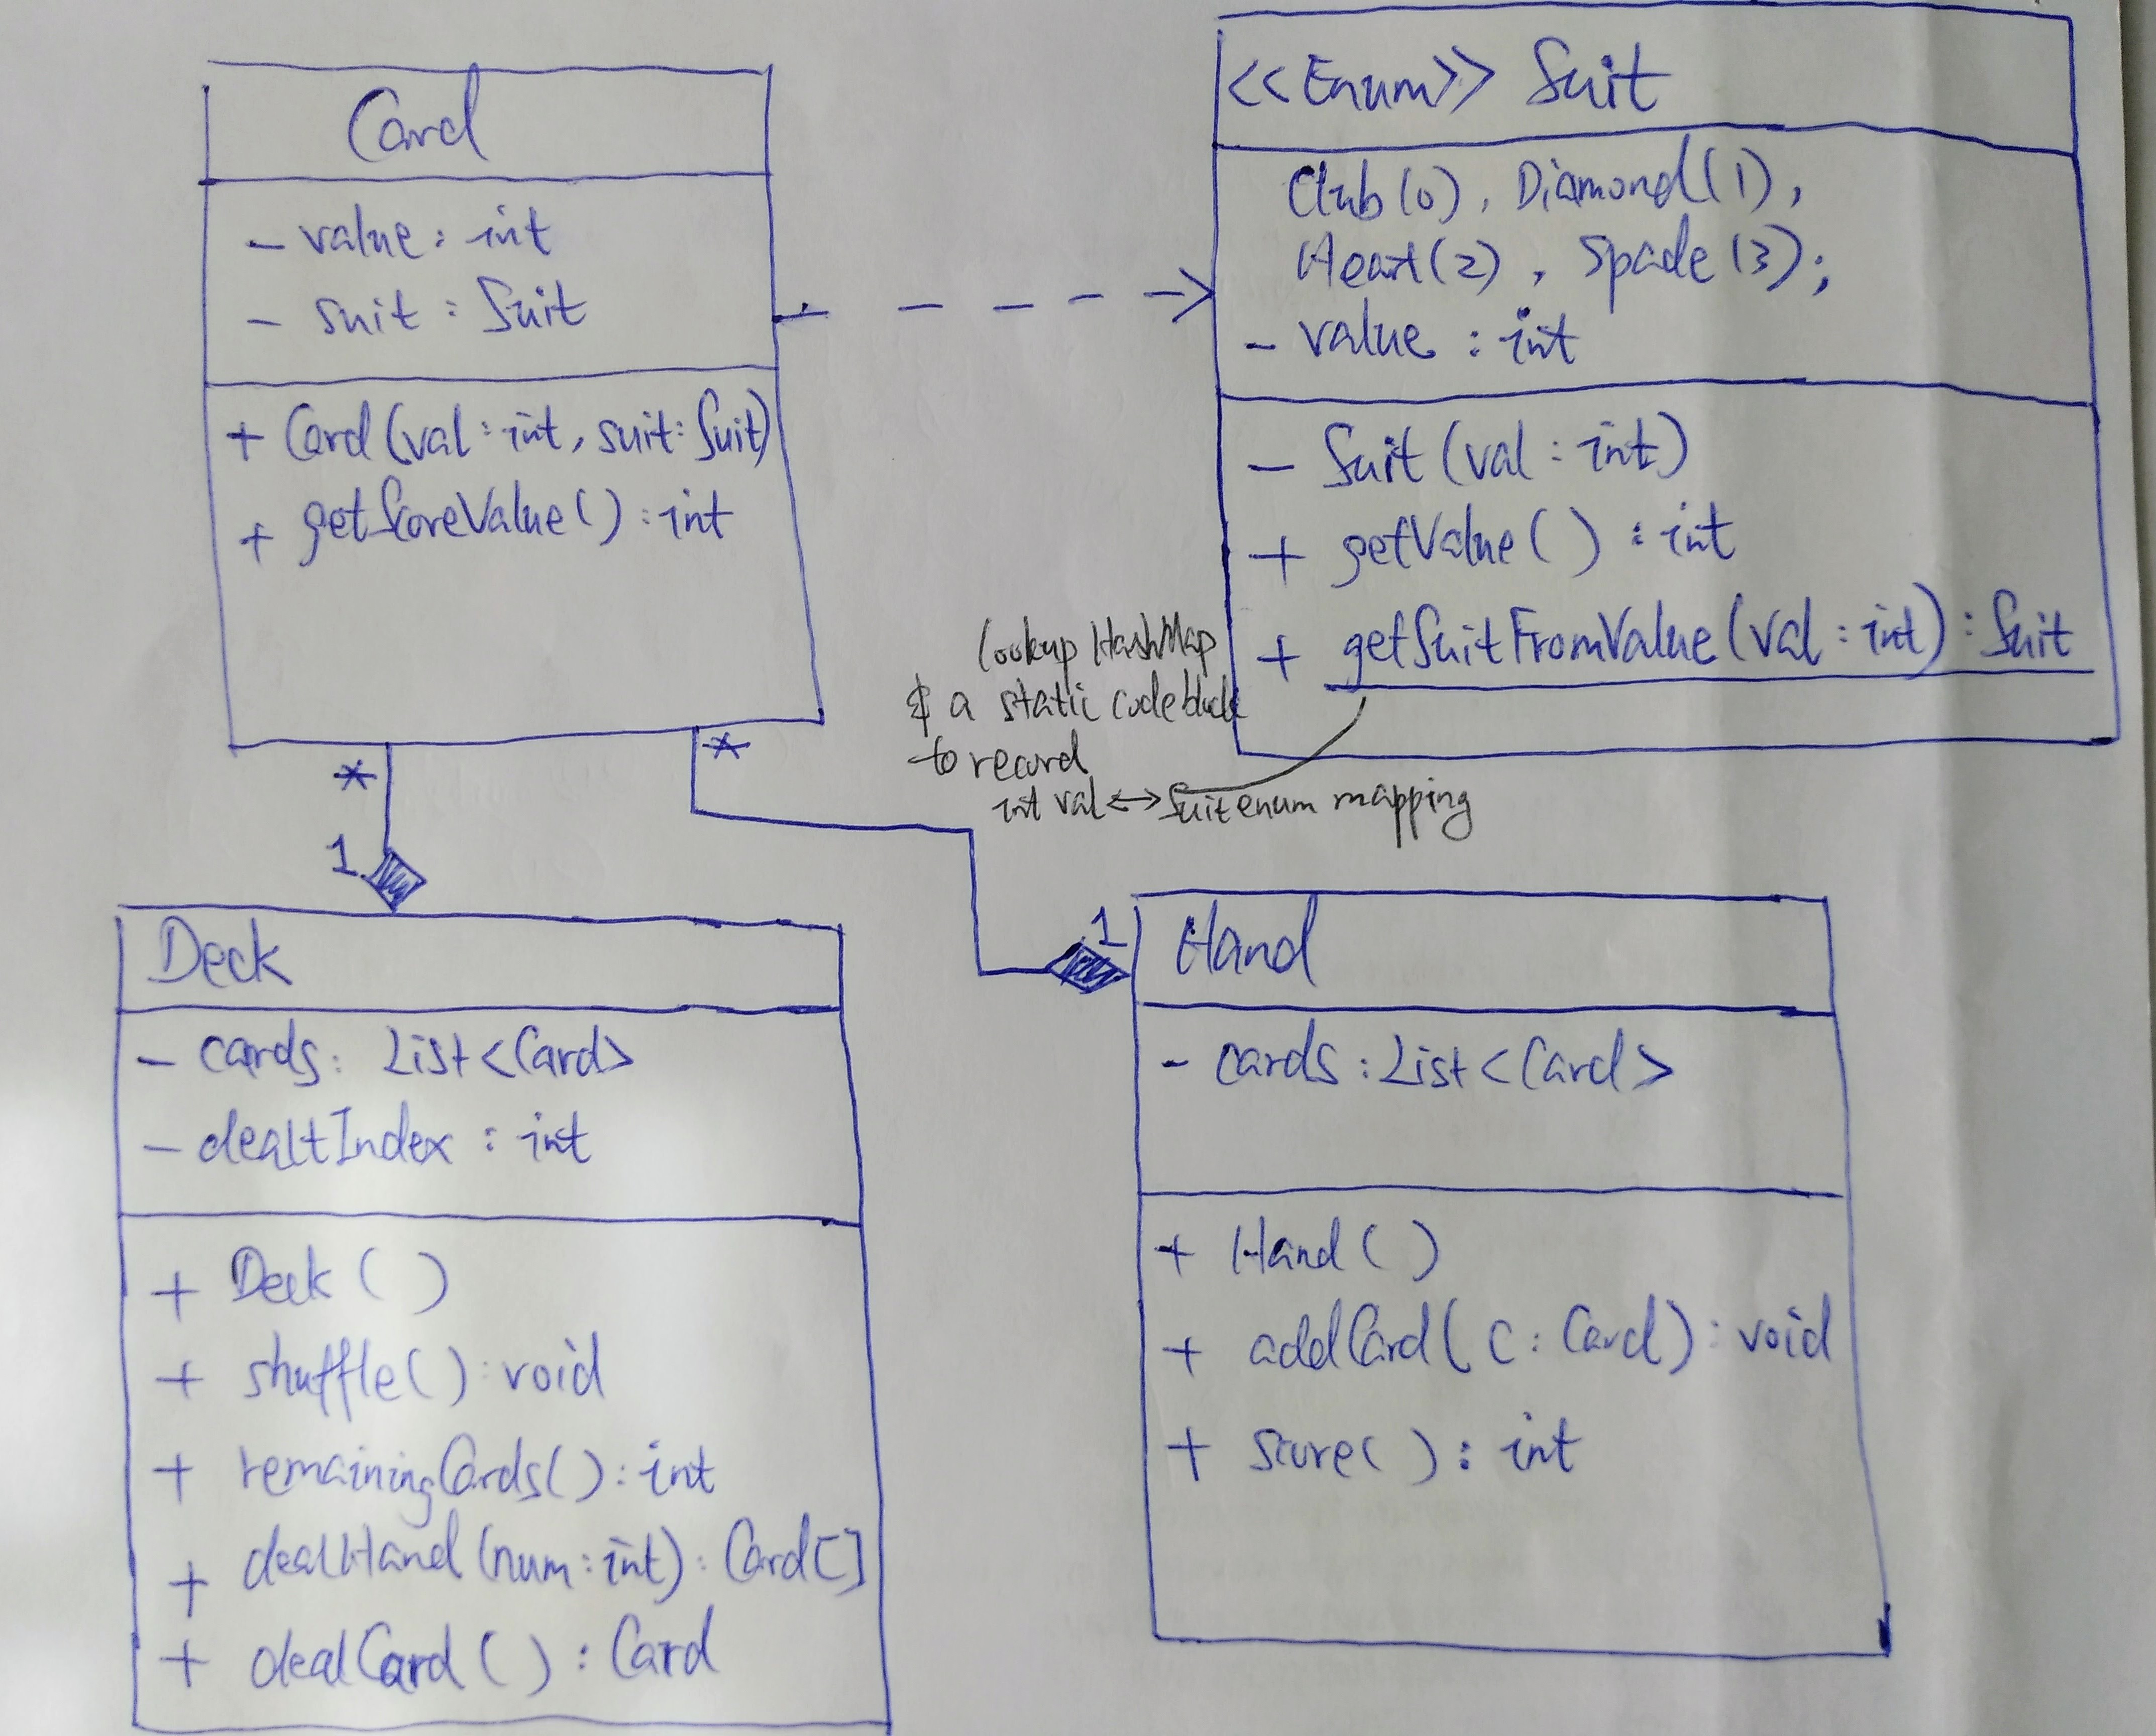 Card
- value : int
- suit : Suit
+ Card (val : int, suit : Suit)
+ getScoreValue ( ) : int
<<Enum>> Suit
Club (0), Diamond (1),
Heart (2), Spade (3);
- value : int
- Suit (val : int)
+ getValue ( ) : int
+ getSuitFromValue (val : int) : Suit
lookup HashMap
& a static code block
to record
int val <-> Suit enum mapping
*
1
*
1
Deck
- cards : List <Card>
- dealtIndex : int
+ Deck ( )
+ shuffle ( ) : void
+ remainingCards ( ) : int
+ dealHand (num : int) : Card []
+ dealCard ( ) : Card
Hand
- cards : List <Card>
+ Hand ( )
+ addCard ( c : Card) : void
+ score ( ) : int